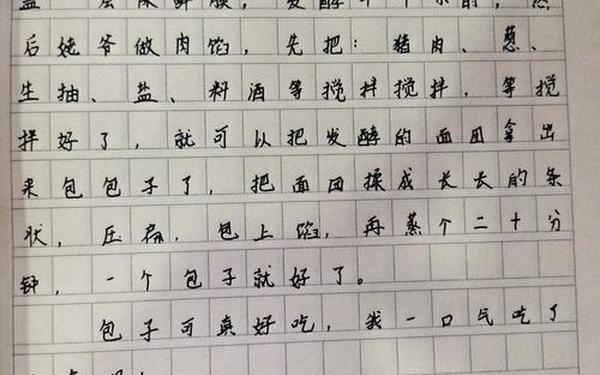 后姥爷做肉馅，先把：猪肉、葱、
生抽、盐、料酒等搅拌搅拌，等搅
拌好了，就可以把发酵的面团拿出
来包包子了，把面团揉成长长的条
状，压扁，包上馅，再蒸个二十分
钟，一个包子就好了。
包子可真好吃，我一口气吃了